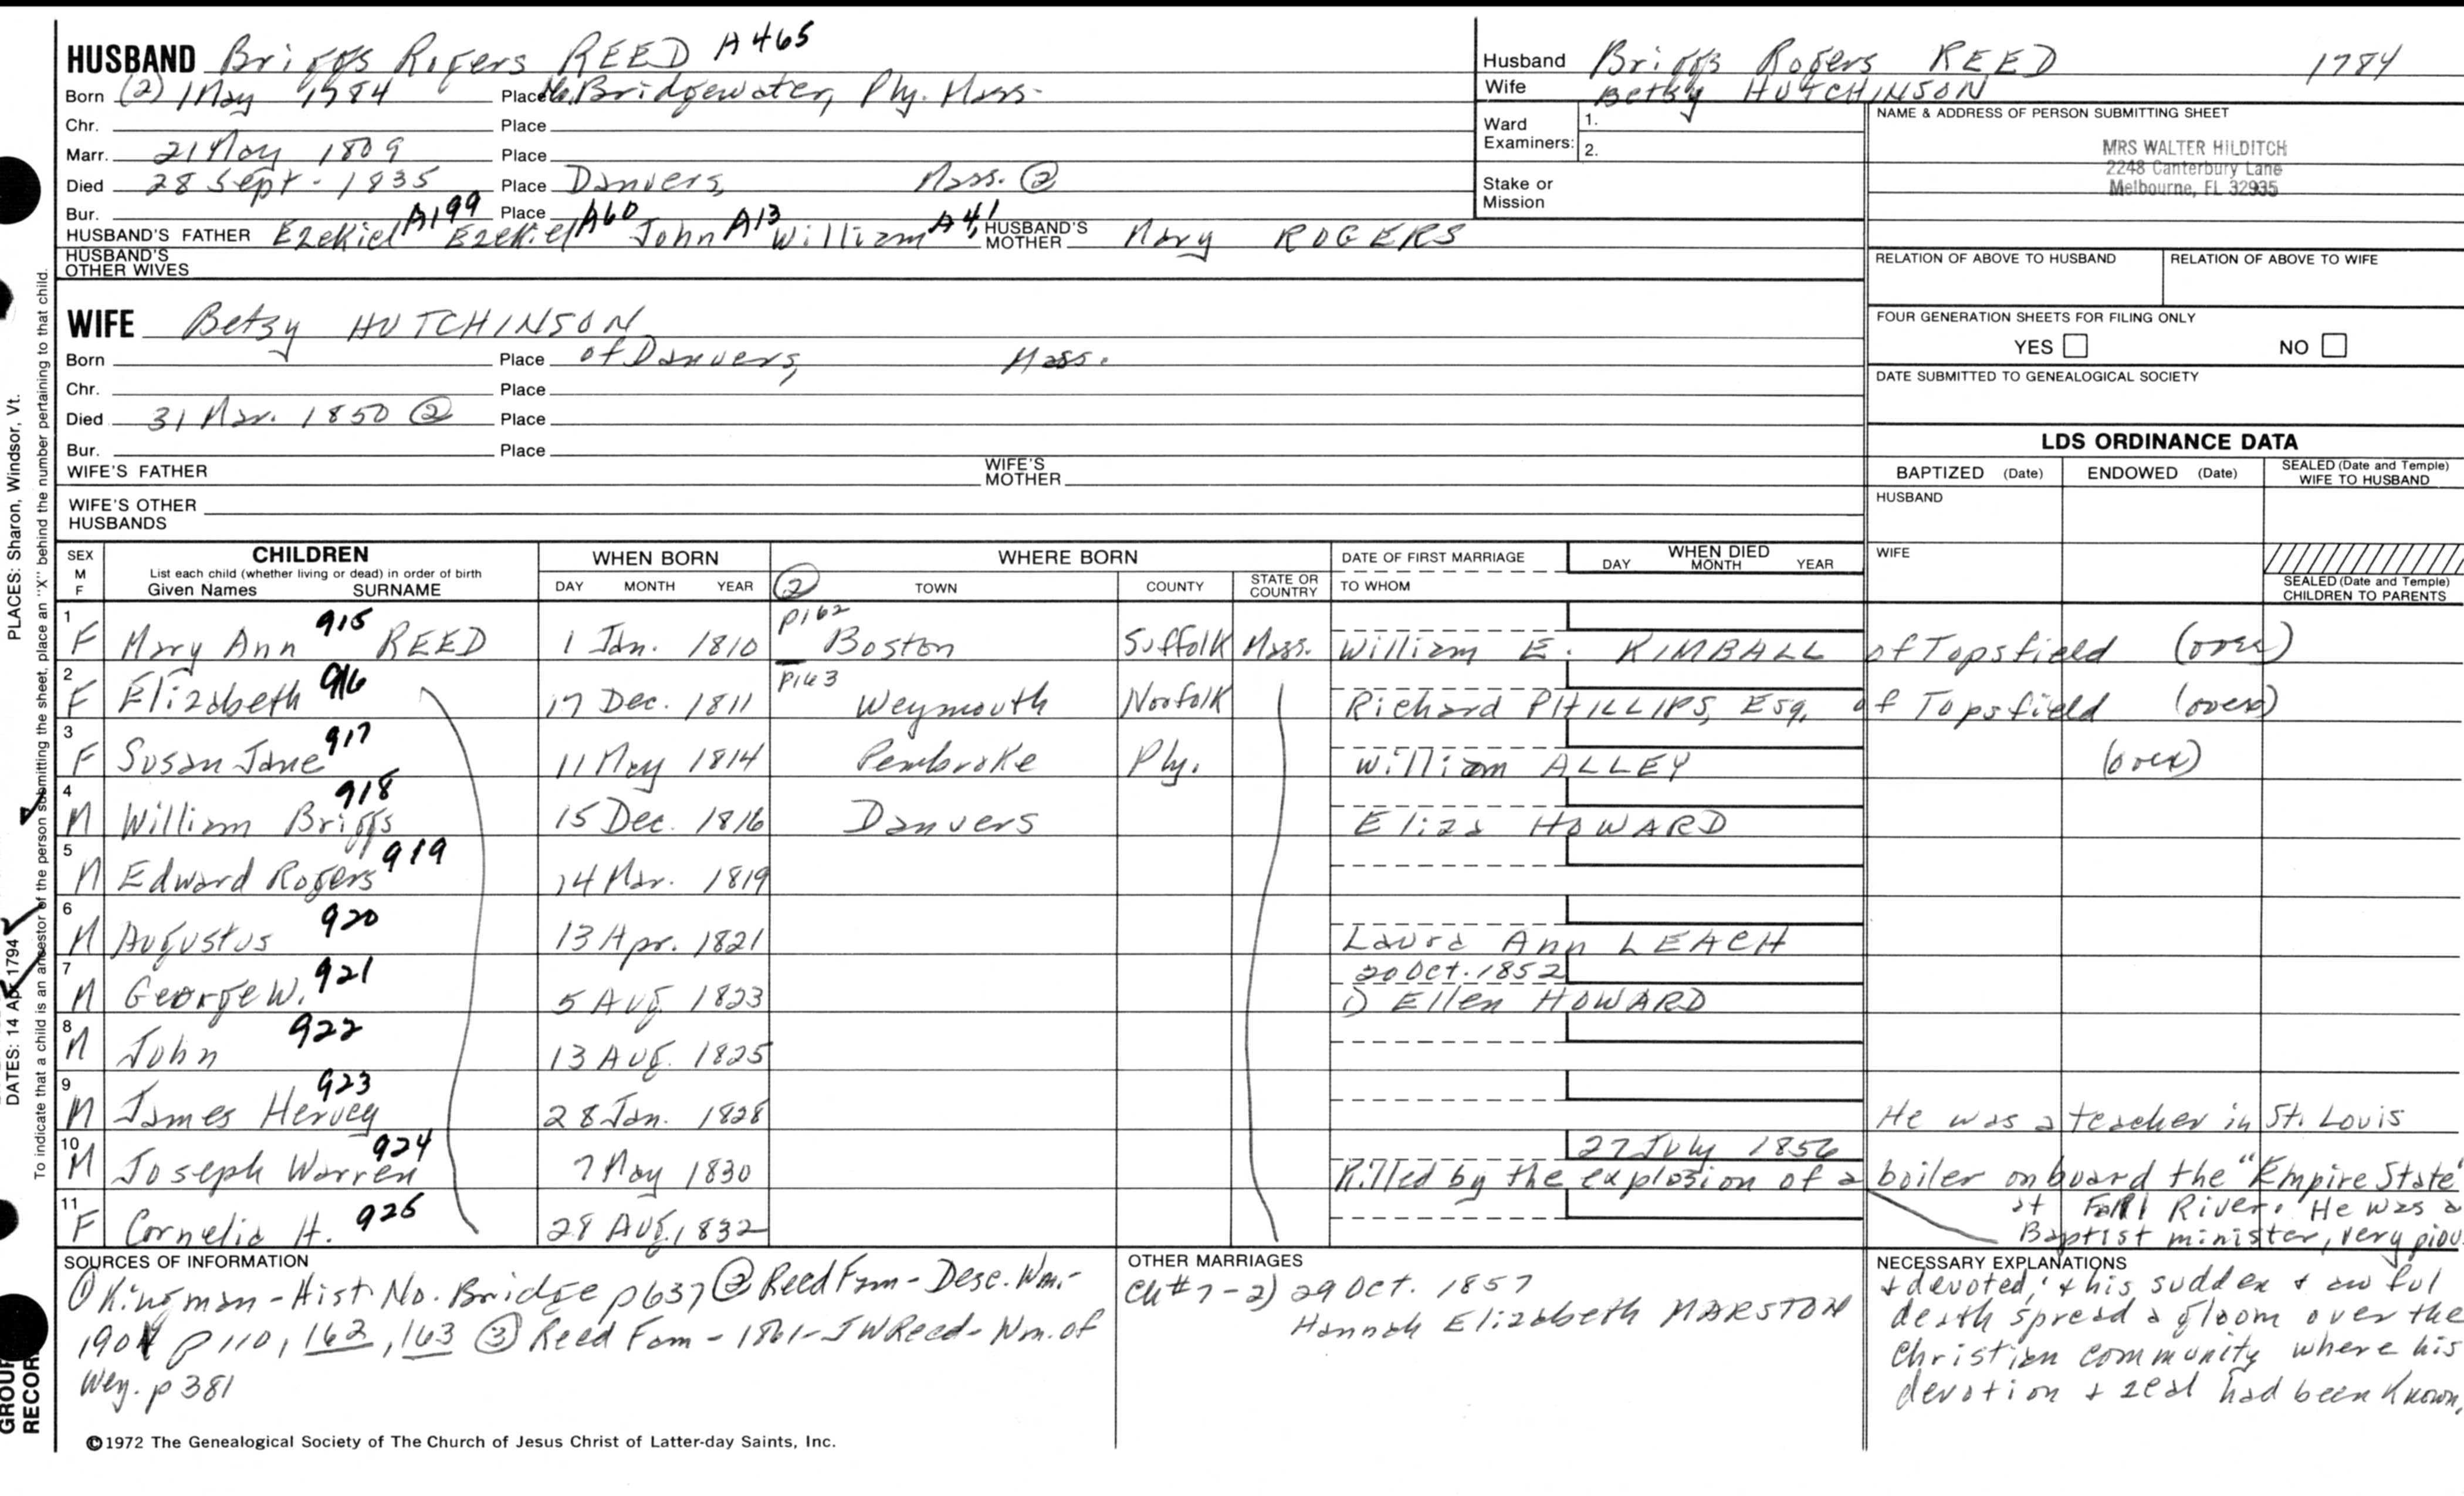 HUSBAND Briggs Rogers REED A465
Born (2) 1 May 1784 Place No. Bridgewater, Ply. Mass.
Chr. Place
Marr. 21 May 1809 Place
Died 28 Sept. 1835 Place Danvers, Mass. ②
Bur. Place
HUSBAND'S FATHER Ezekiel A199 Ezekiel A60 John A13 William A41, HUSBAND'S MOTHER Mary ROGERS
HUSBAND'S OTHER WIVES
Husband Briggs Rogers REED 1784
Wife Betsy HUTCHINSON
Ward Examiners: 1.
2.
Stake or Mission
NAME & ADDRESS OF PERSON SUBMITTING SHEET
MRS WALTER HILDITCH
2248 Canterbury Lane
Melbourne, FL 32935
RELATION OF ABOVE TO HUSBAND RELATION OF ABOVE TO WIFE
FOUR GENERATION SHEETS FOR FILING ONLY
YES NO
DATE SUBMITTED TO GENEALOGICAL SOCIETY
WIFE Betsy HUTCHINSON
Born Place of Danvers, Mass.
Chr. Place
Died 31 Mar. 1850 ② Place
Bur. Place
WIFE'S FATHER WIFE'S MOTHER
WIFE'S OTHER HUSBANDS
LDS ORDINANCE DATA
BAPTIZED (Date) ENDOWED (Date) SEALED (Date and Temple) WIFE TO HUSBAND
HUSBAND
WIFE
SEALED (Date and Temple) CHILDREN TO PARENTS
SEX M F
CHILDREN
List each child (whether living or dead) in order of birth
Given Names SURNAME
WHEN BORN
DAY MONTH YEAR
WHERE BORN
② TOWN COUNTY STATE OR COUNTRY
DATE OF FIRST MARRIAGE
TO WHOM
WHEN DIED
DAY MONTH YEAR
1 F Mary Ann 915 REED 1 Jan. 1810 p162 Boston Suffolk Mass. William E. KIMBALL of Topsfield (over)
2 F Elizabeth 916 17 Dec. 1811 p163 Weymouth Norfolk Richard PHILLIPS, Esq. of Topsfield (over)
3 F Susan Jane 917 11 May 1814 Pembroke Ply. William ALLEY (over)
4 M William Briggs 918 15 Dec. 1816 Danvers Eliza HOWARD
5 M Edward Rogers 919 14 Mar. 1819
6 M Augustus 920 13 Apr. 1821 Laura Ann LEACH
7 M George W. 921 5 Aug. 1823 20 Oct. 1852
1) Ellen HOWARD
8 M John 922 13 Aug. 1825
9 M James Hervey 923 28 Jan. 1828 He was a teacher in St. Louis
10 M Joseph Warren 924 7 May 1830 27 July 1856
Killed by the explosion of a boiler on board the "Empire State"
at Fall River. He was a
Baptist minister, very piou
11 F Cornelia H. 925 28 Aug. 1832
SOURCES OF INFORMATION
① Kingman - Hist. No. Bridge p637 ② Reed Fam - Desc. Wm. -
1901 p110, 162, 163 ③ Reed Fam - 1861 - JWReed - Wm. of
Wey. p381
OTHER MARRIAGES
Ch #7 - 2) 29 Oct. 1857
Hannah Elizabeth MARSTON
NECESSARY EXPLANATIONS
+ devoted; + his sudden + awful
death spread a gloom over the
Christian community where his
devotion + zeal had been known.
©1972 The Genealogical Society of The Church of Jesus Christ of Latter-day Saints, Inc.
PLACES: Sharon, Windsor, Vt.
To indicate that a child is an ancestor of the person submitting the sheet, place an "X" behind the number pertaining to that child.
DATES: 14 Apr 1794
GROUP
RECOR